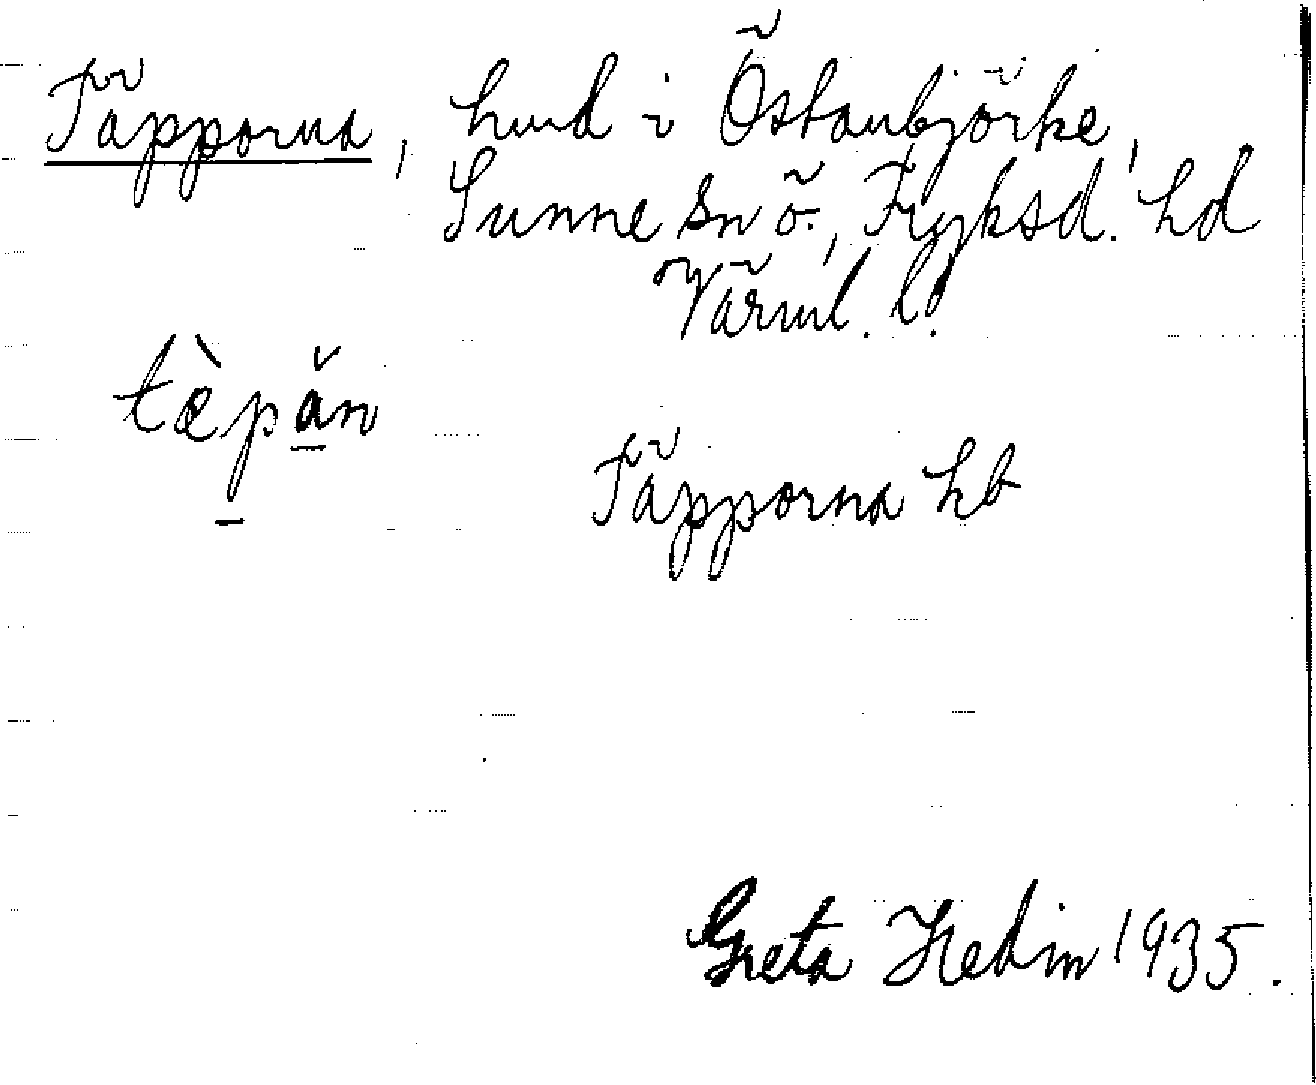 Täpporna, hmd i Östanbjörke,
Sunne sn ö., Fryksd. hd
Värml. l.
tæ̀pǎ̲n
Täpporna hb
Greta Hedin 1935.